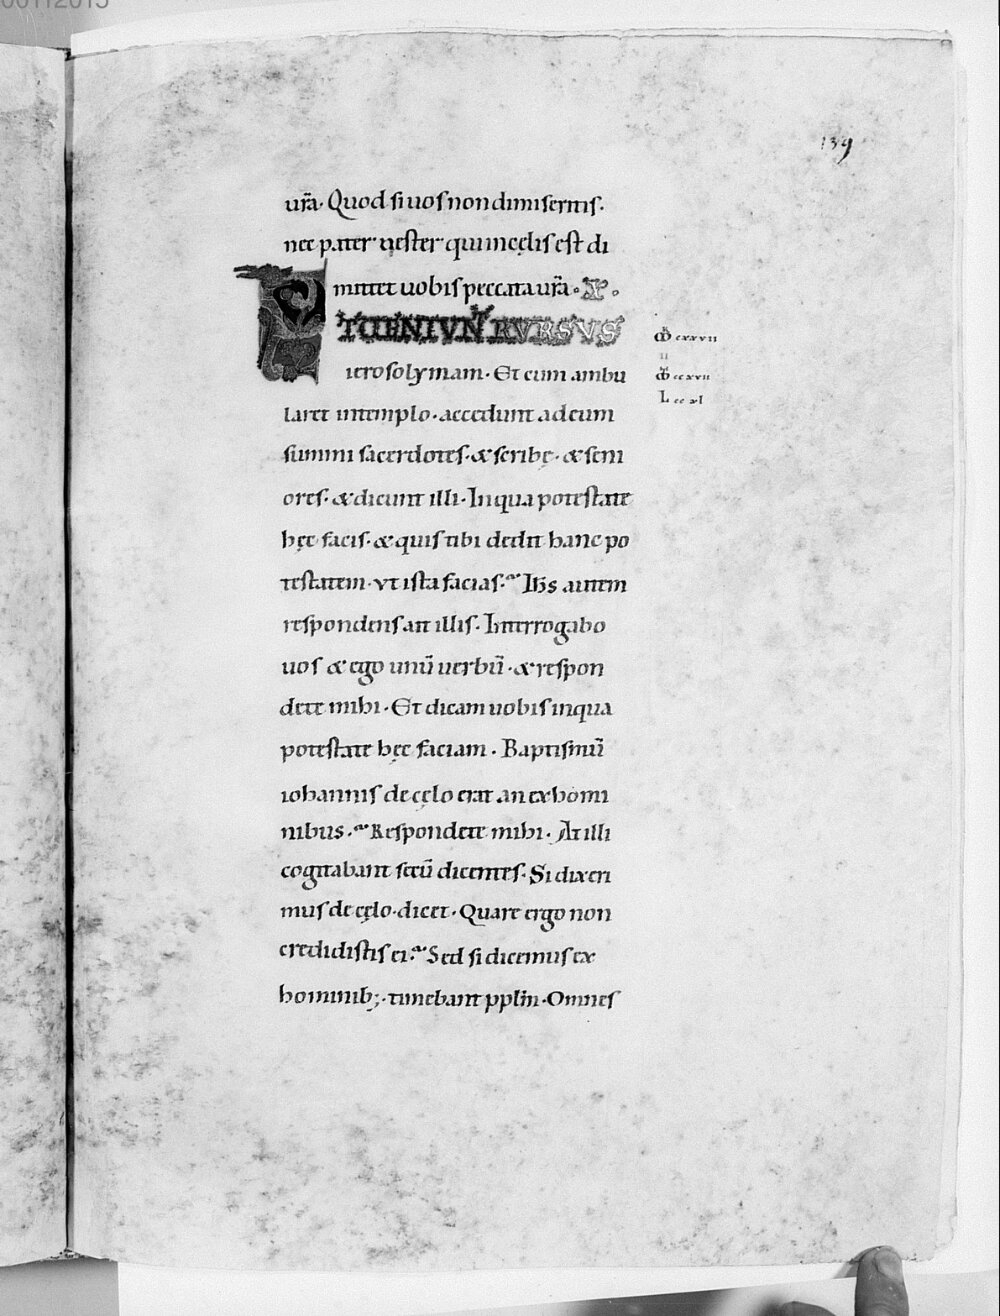 139
ur̄a. Quod si uos non dimiseritis.
nec pater uester qui in cęlis est di
mittet uobis peccata ur̄a.
ET UENIUNT RURSUS
cxxvii
ierosolymam. Et cum ambu
ccxvii
laret in templo. accedunt ad eum
L ccxl
summi sacerdotes. & scribę. & seni
ores. & dicunt illi. In qua potestate
hęc facis. & quis tibi dedit hanc po
testatem. vt ista facias. Ihs autem
respondens ait illis. Interrogabo
uos & ego unū uerbū. & respon
dete mihi. Et dicam uobis in qua
potestate hęc faciam. Baptismū
iohannis de cęlo erat an ex homi
nibus. Respondete mihi. At illi
cogitabant secū dicentes. Si dixeri
mus de cęlo. dicet. Quare ergo non
credidistis ei. Sed si dicemus ex
hominib;. timebant pplm̄. Omnes